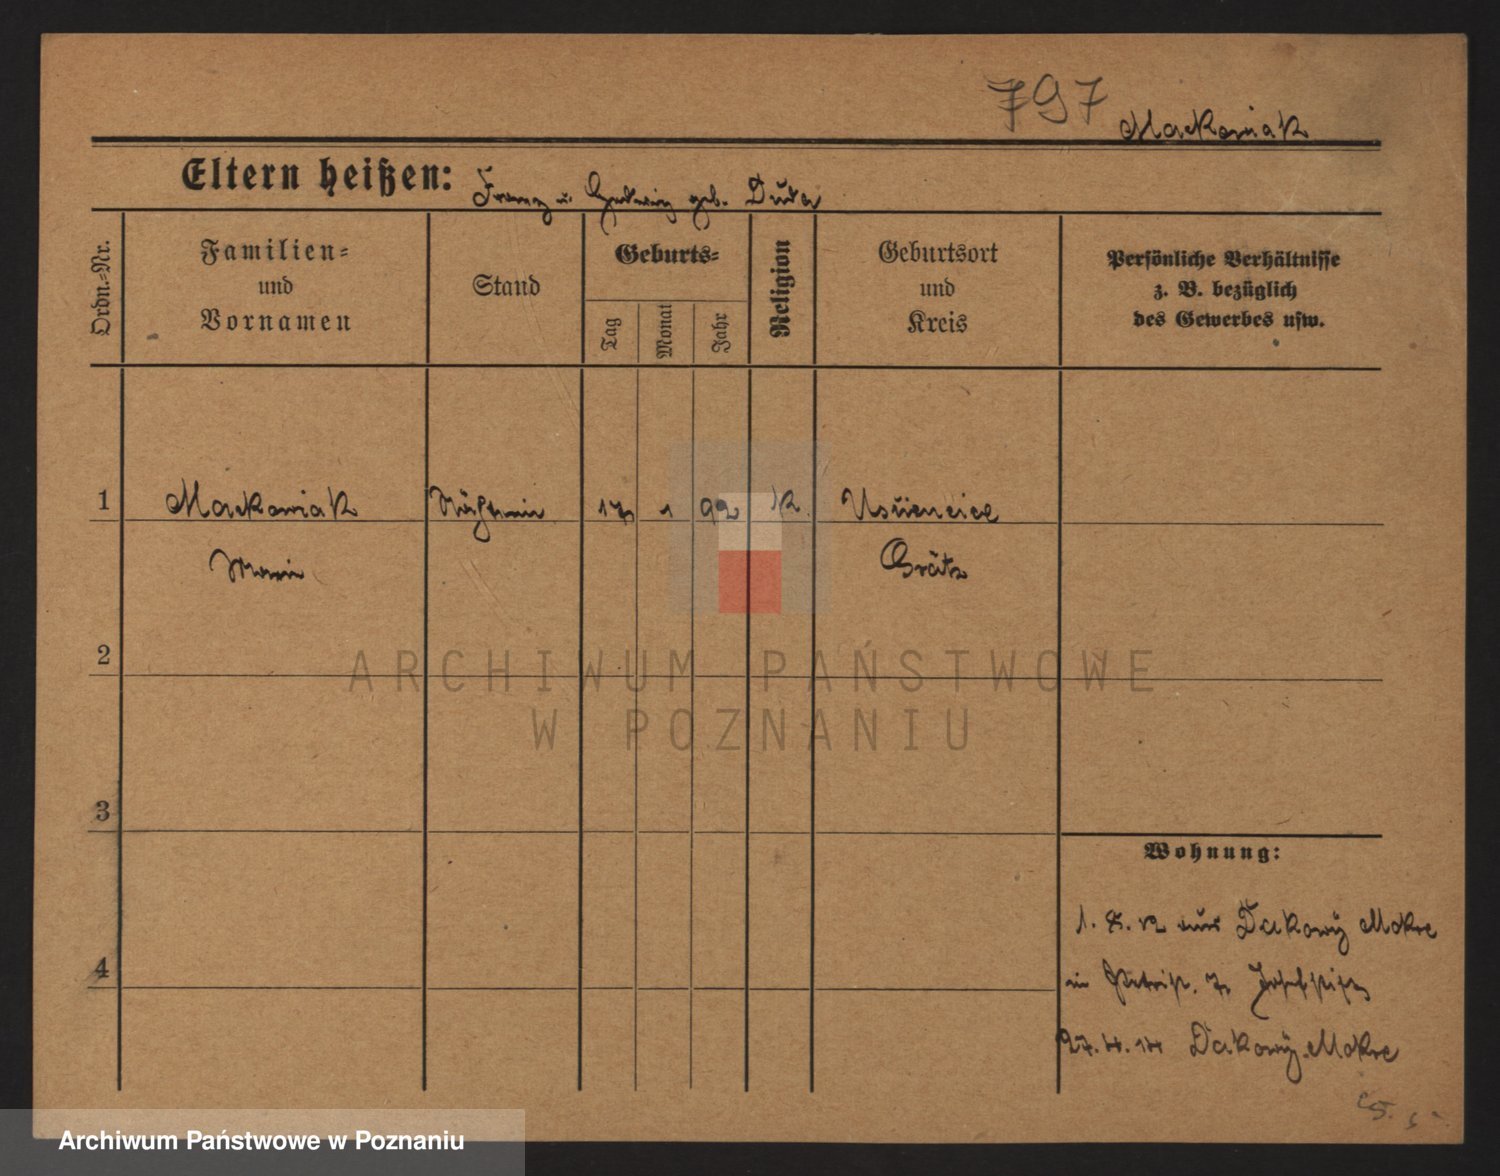 797
Mackowiak
Eltern heißen: Franz u. Hedwig geb. Duda
Ordn.=Nr.
Familien=
und
Vornamen
Stand
Geburts=
Tag
Monat
Jahr
Religion
Geburtsort
und
Kreis
Persönliche Verhältnisse
z. B. bezüglich
des Gewerbes usw.
1 Mackowiak 17 1 92 K.
Grätz
2
ARCHIWUM PAŃSTWOWE
W POZNANIU
3
Wohnung:
1. 8. 12 aus Dakowy Mokre
4
in Petristr. 7
Dakowy-Mokre
Archiwum Państwowe w Poznaniu